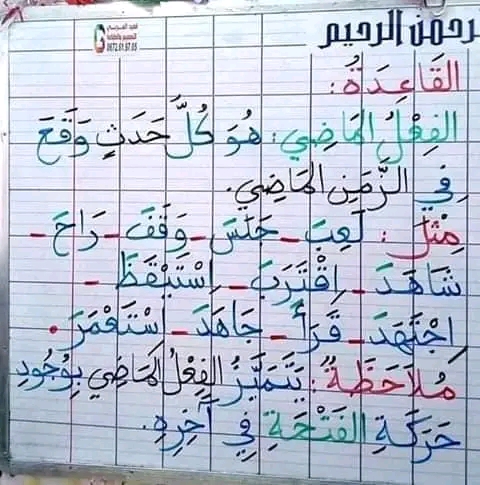 رحمن الرحيم
القَاعِدَةُ:
الفِعْلُ المَاضِي: هُوَ كُلُّ حَدَثٍ وَقَعَ
فِي الزَّمَنِ المَاضِي.
مِثْلَ: لَعِبَ - جَلَسَ - وَقَفَ - رَاحَ -
شَاهَدَ - اِقْتَرَبَ - اِسْتَيْقَظَ -
اِجْتَهَدَ - قَرَأَ - جَاهَدَ - اِسْتَعْمَرَ.
مُلَاحَظَةٌ: يَتَمَيَّزُ الفِعْلُ المَاضِي بِوُجُودِ
حَرَكَةِ الفَتْحَةِ فِي آخِرِهِ.